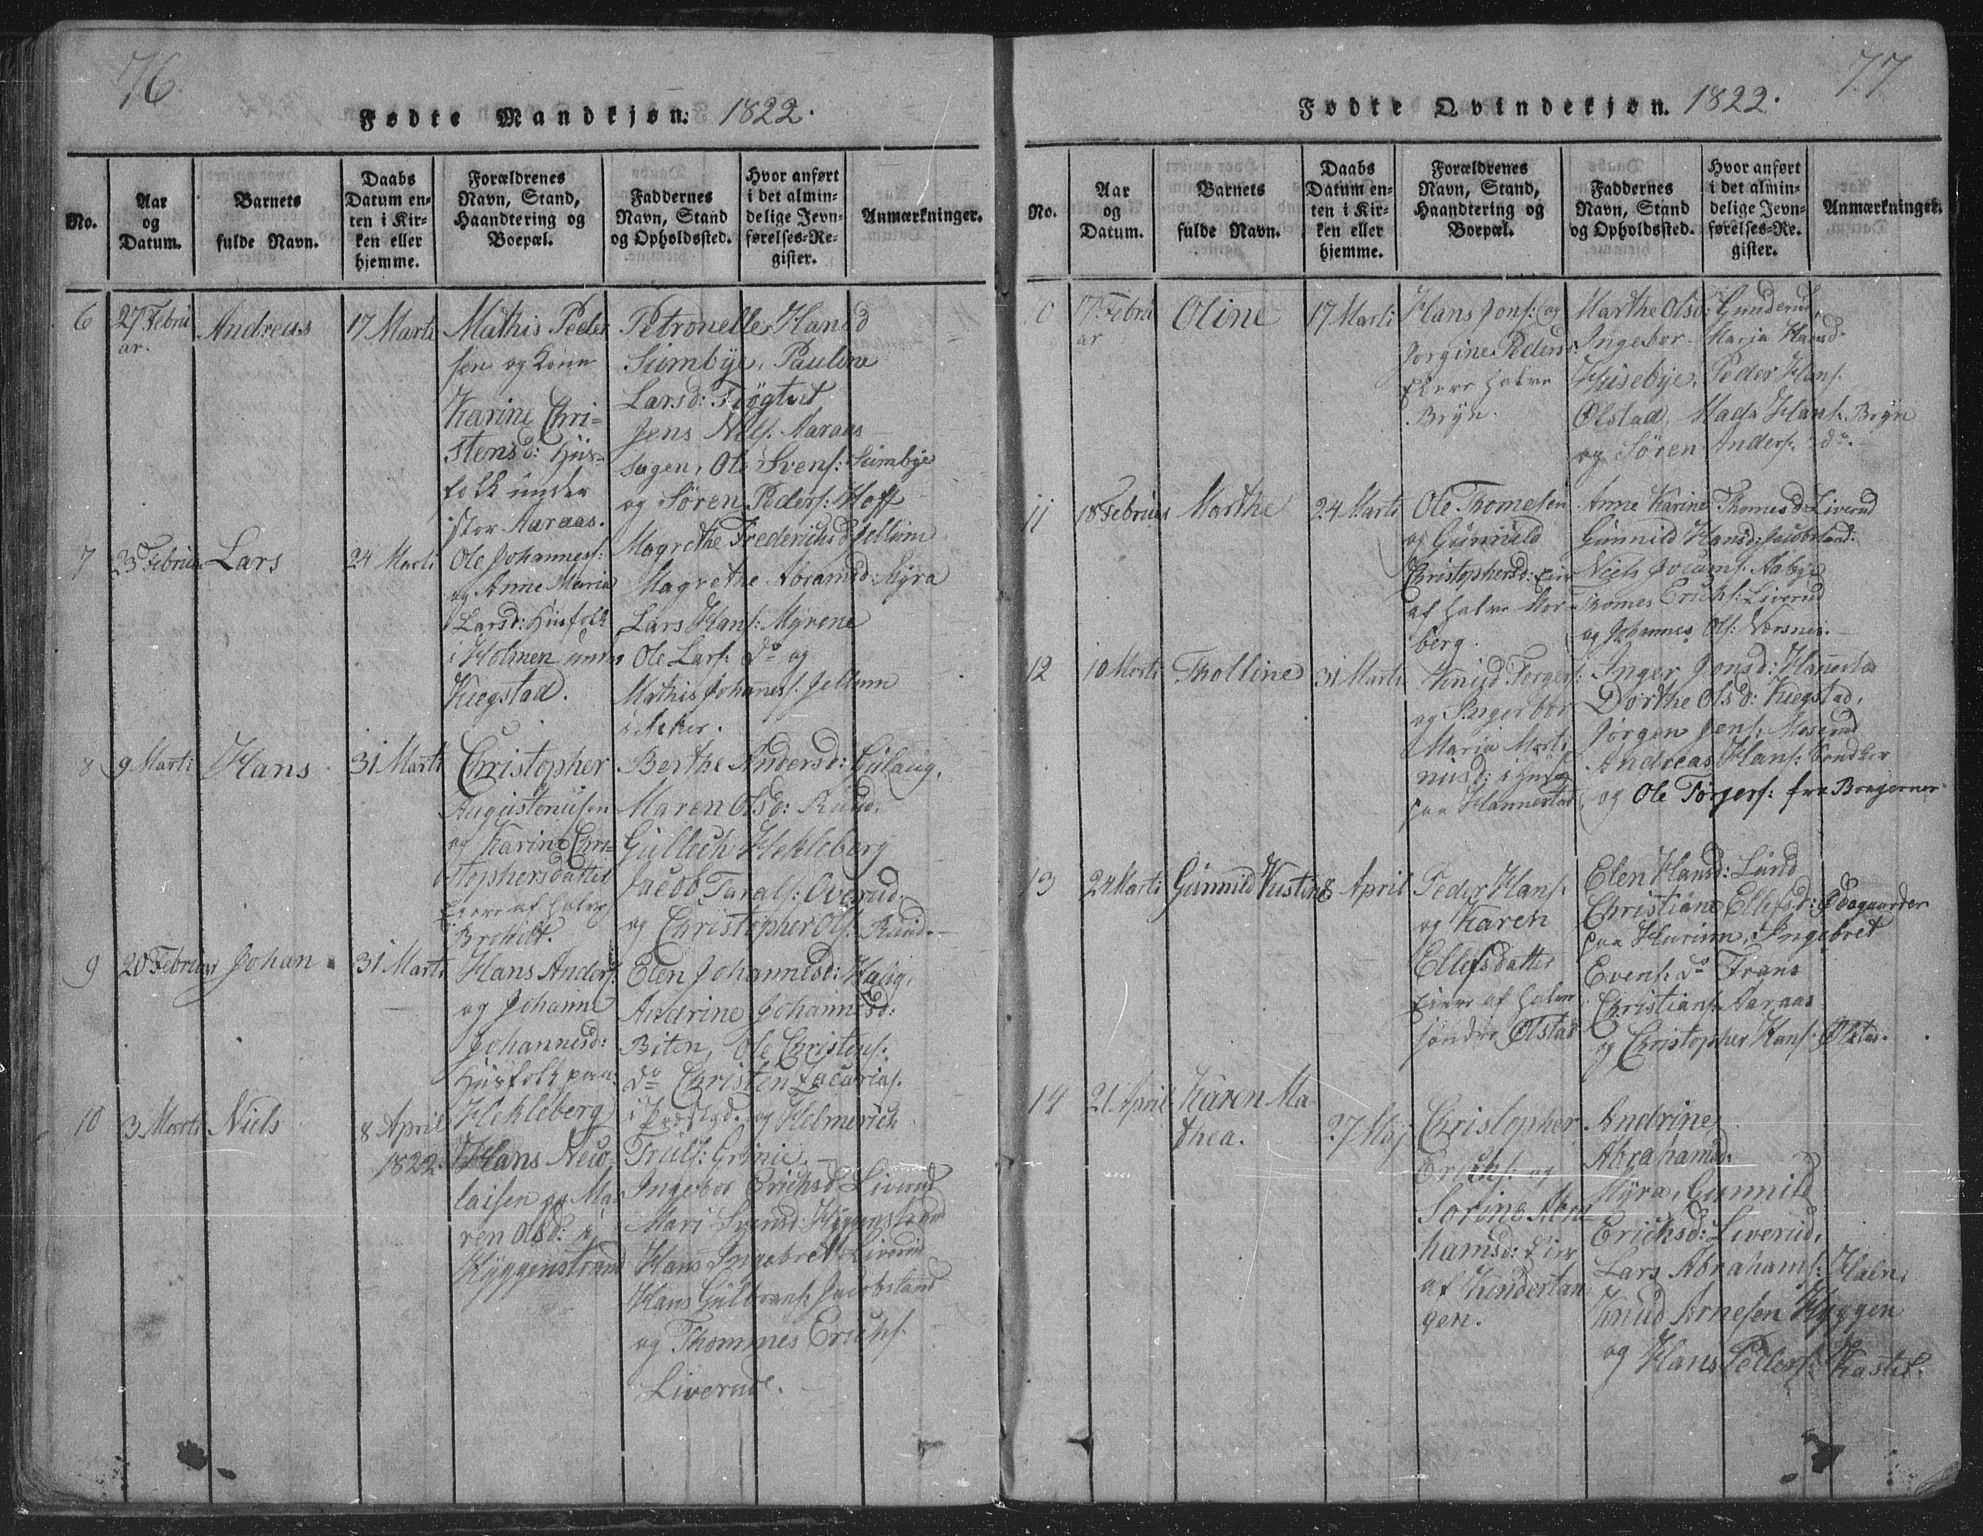 76
Fødte Mandkjøn: 1822.
No.
Aar og Datum.
Barnets fulde Navn.
Daabs Datum enten i Kirken eller hjemme.
Forældrenes Navn, Stand, Haandtering og Boepæl.
Faddernes Navn, Stand og Opholdssted.
Hvor anført i det almindelige Jevnførelses-Register.
Anmærkninger.
6
27 Febru
ar.
Andreas
17 Marti
Mathis Peder
sen og Kone
Karine Chri-
stensd: Hus-
folk under
stor Aaraas.
Petronelle Hansd
Sumbye, Pauline
Larsd:
Jens Nils. Aaraas-
sagen, Ole Svens: Sumbye
og Søren Peders: Hoff
7
23 Februar
Lars
24 Marti
Ole Johanness:
og Anne Maria
Larsd: Husfolk
i Holmen under
Kiegstad.
Magrethe Frederichsd Jellum
Magrethe Abramsd: Myra
Lars Hans: Myrene
Ole Lars: Do og
Mathis Johannes: Jellum
i Asker.
8
9 Marti
Hans
31 Marti
Christopher
Augustenusen
og Karine Chri-
stophersdatter
Eiere af halve
Berthe Andersd: Gilaug,
Maren Olsd: Ruud,
Gullech Hekleberg
Jacob Tarals: Overud
og Christopher Ols: Ruud.
9
20 Februar
Johan
31 Marti
Hans Anders:
og Johanne
Johannesd:
Husfolk paa
Hekleberg
Elen Johannesd: Haug,
Andrine Johannesd:
Biten, Ole Christens:
do Christen Zacarias.
i Præstgd. og Helmerich
Truls: Grinie.
10
3 Marti
Niels
8 April
1822.
Hans New-
laisen og Ma-
ren Olsd:
Hyggenstrand
Ingebor Erichsd Liverud
Mari Syversd: Hyggenstrand
Hans Ingebret Liverud
Hans Gulbrans: Jacobsland
og Thommes Erichs.
Liverude.
77
Fødte Qvindekjøn. 1822.
No.
Aar og Datum.
Barnets fulde Navn.
Daabs Datum enten i Kirken eller hjemme.
Forældrenes Navn, Stand, Haandtering og Boepæl.
Faddernes Navn, Stand og Opholdssted.
Hvor anført i det almindelige Jevnførelses-Register.
Anmærkninger.
0
17 Febru
ar
Oline
17 Marti
Hans Jons: og
Jorgine Pedersd:
Eiere halve
Bryn.
Marthe Olsd: Gunderud,
Ingebor Maria Hansd.
Husebye, Peder Hans.
Ølstad, Mads Hans. Bryn
og Søren Anders: do.
11
18 Februar
Marthe
24 Marti
Ole Thomesen
og Gunnild
Christophersd: Eier
af halve Mor-
berg.
Anne Karine Thomesd: Liverud
Gunnild Hansd: Jacobsland:
Niels Jocums: Aabye
Thomes Erichs: Liverud
og Johannes Ols: Næsnes.
12
10 Marti
Tholline
31 Marti
Knud Torgers:
og Ingerbor
Maria Marti
nusd: i Huse
paa Hannestad
Anger Jonsd: Hannestad
Dorthe Olsd: Kiegstad,
Jørgen Jens: Moserud
Andreas Hans: Sondker
og Ole Torjers: fra Bragerner
13
24 Marti
Gunnild Kustine
8 April
Peder Hans.
og Karen
Ellefsdatter
Eiere af halve
søndre Ølstad
Elen Hansd: Lund
Christiane Ellefsd: Ødegaarden
paa Hurum, Ingebret
Evens: do Frans
Christians: Aaraas
og Christopher Hans: Ølstad.
14
21 April
Karen Ma-
thea.
27 Maj
Christopher
Erichs: og
Sorine Abra
hamsd: Eier
af Kindertan
gen.
Andrine
Abrahamsd:
Myra, Gunnild
Erichsd: Liverud,
Lars Abrahams: Halv,
Knud Arnesen Hyggen
og Hans Peders: